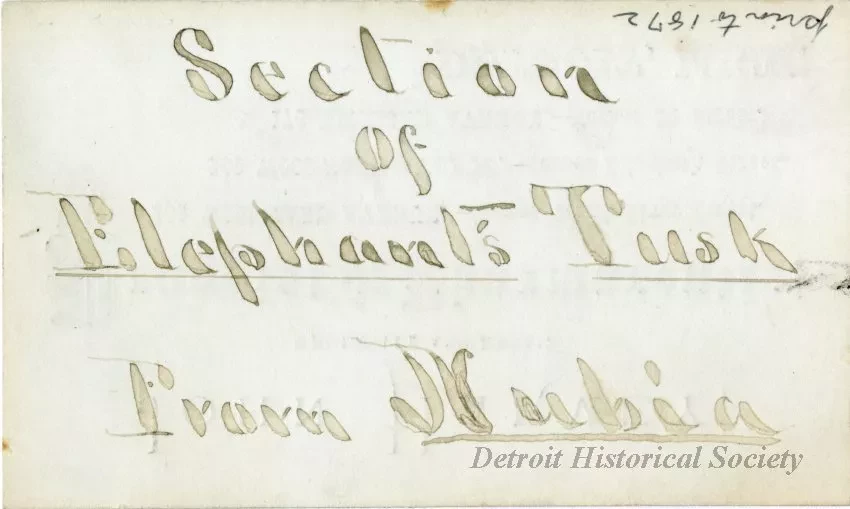 prior to 1872
Section
Of
Elephant's Tusk
From Nubia
Detroit Historical Society